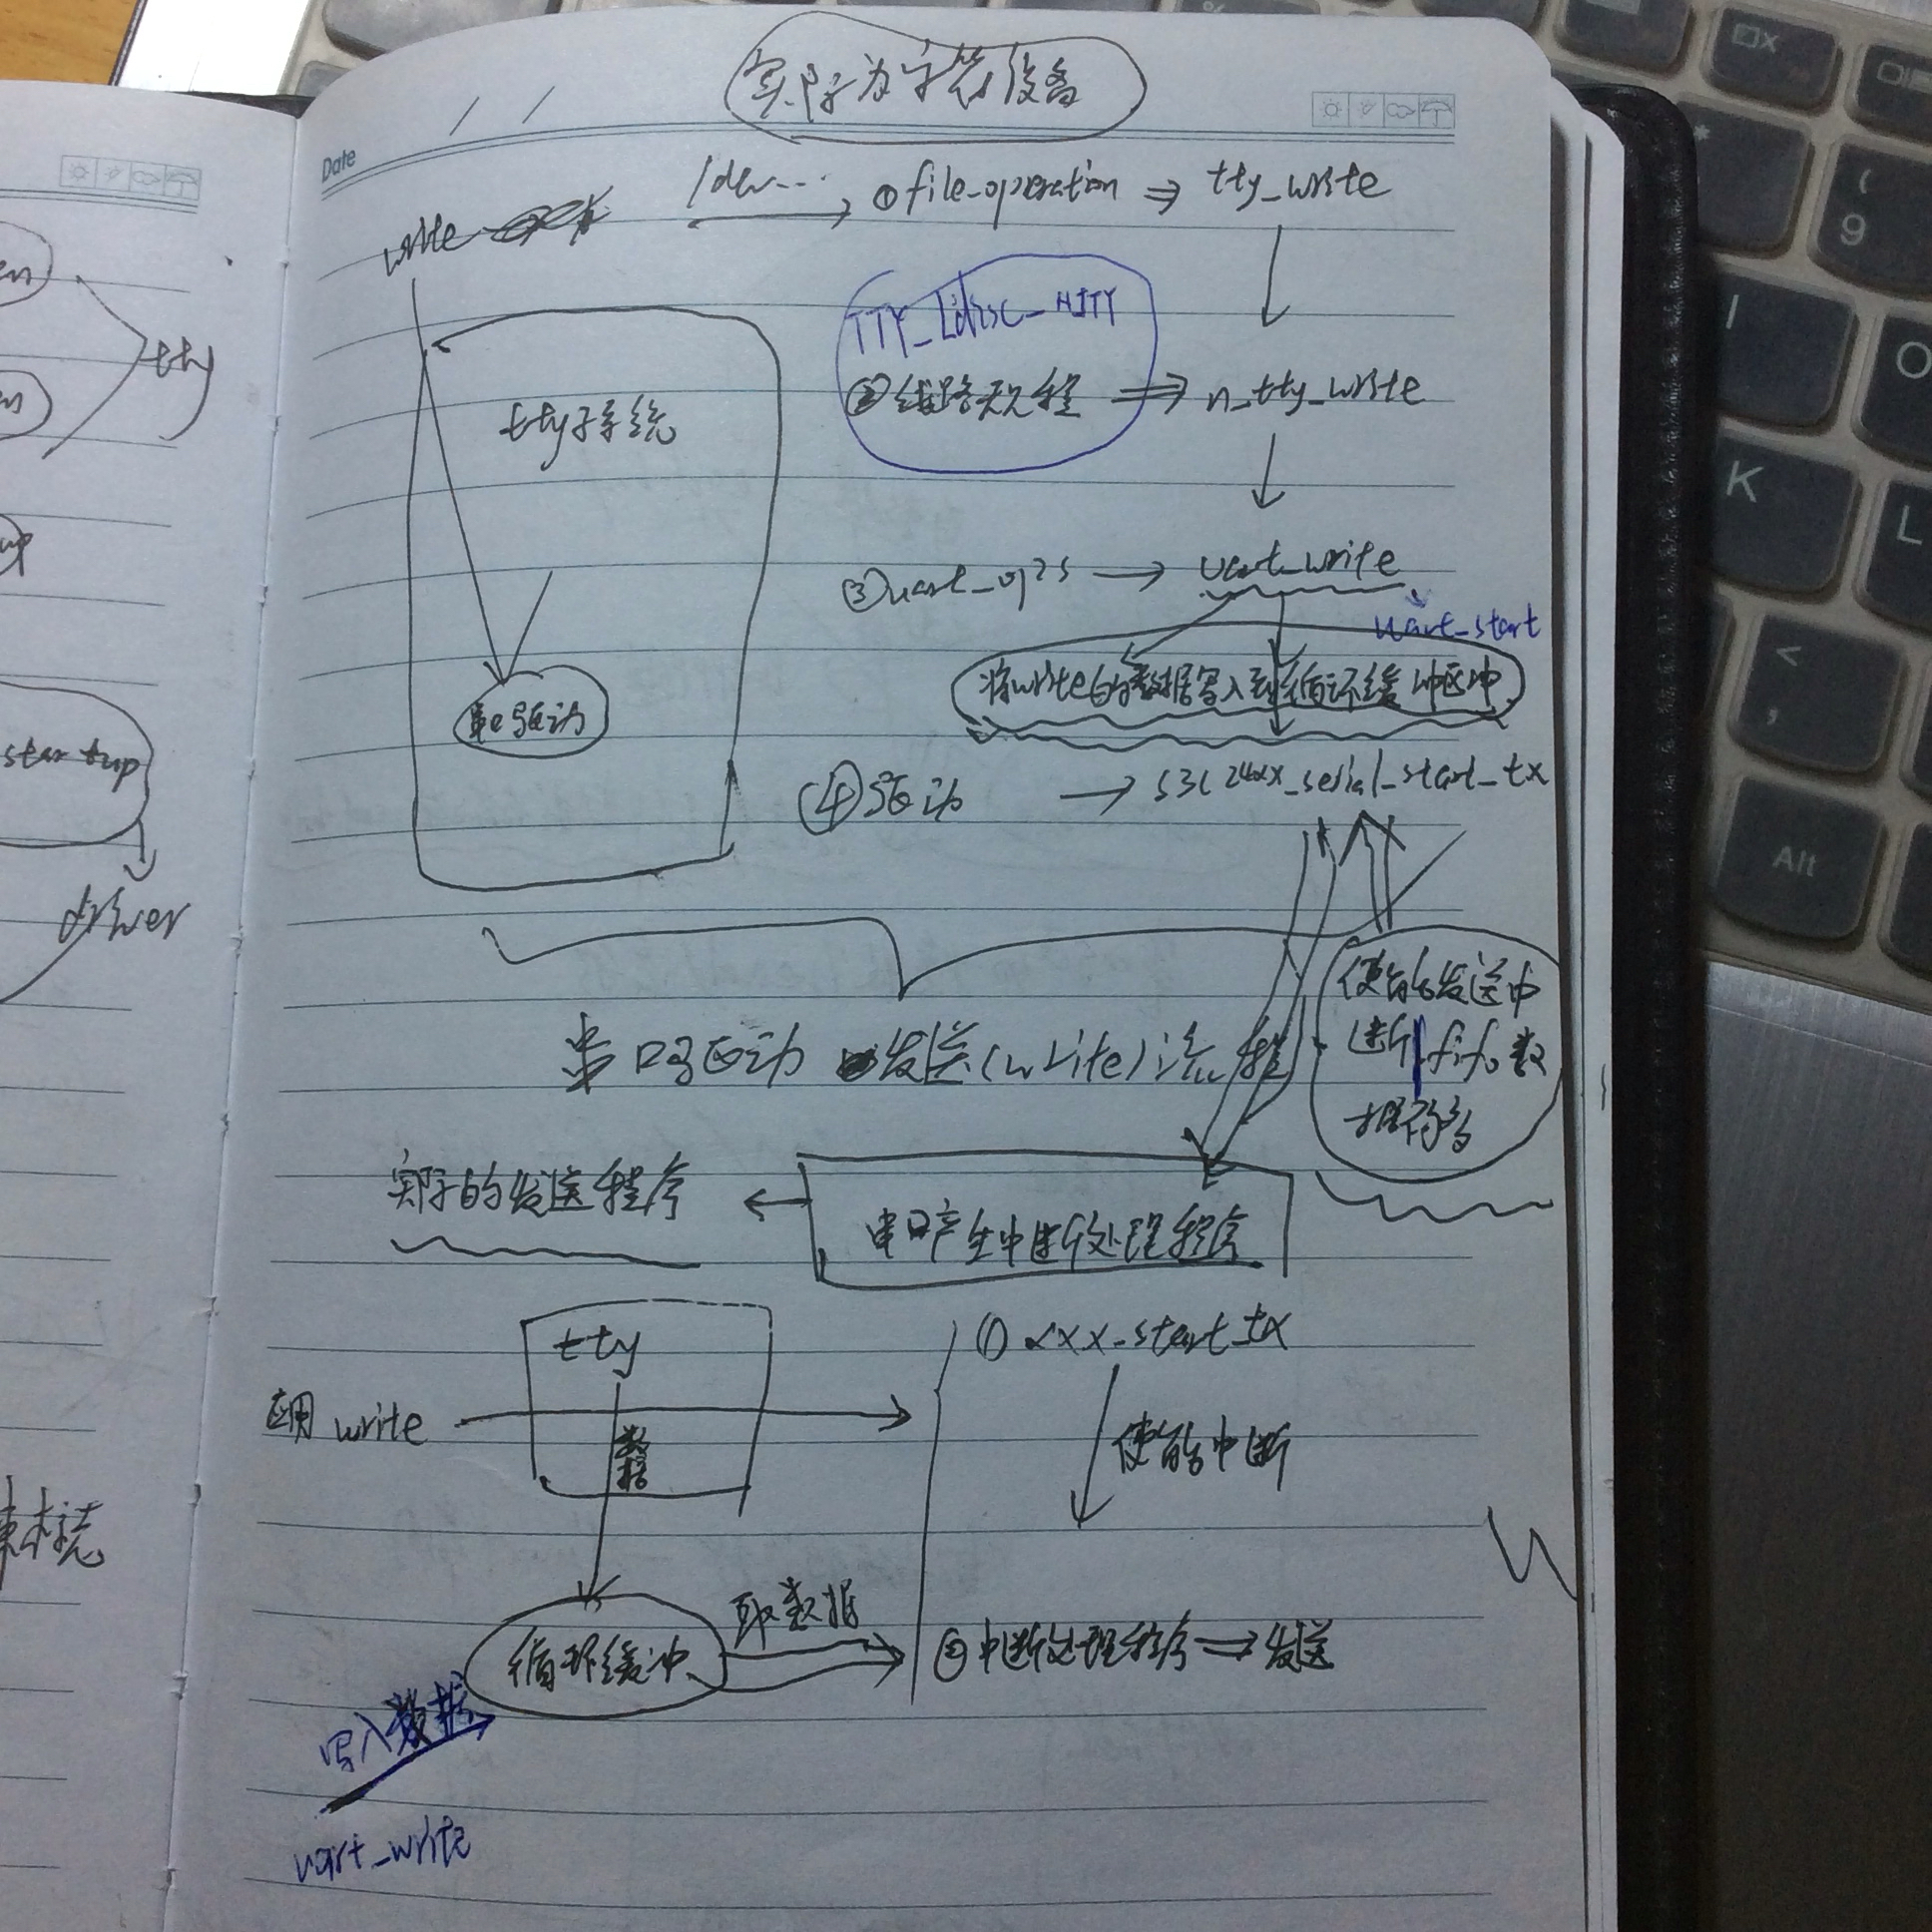 实际为字符设备
Date
/dev... ①file_operation ⇒ tty_write
write
TTY_Ldisc_NTTY
②线路规程 ⇒ n_tty_write
tty子系统
③uart_ops → uart_write
uart_start
将write的数据写入到循环缓冲区中
串口驱动
④驱动 → s3c24xx_serial_start_tx
使能发送中
断fifo数
据
串口驱动 发送(write)流程
实际的发送程序 ← 串口产生中断处理程序
tty
① xxx_start_tx
应用 write
数据
使能中断
取数据
循环缓冲
②中断处理程序 ⇒ 发送
写入数据
uart_write
tty
startup
driver
* ( 9 I O K L < , Alt